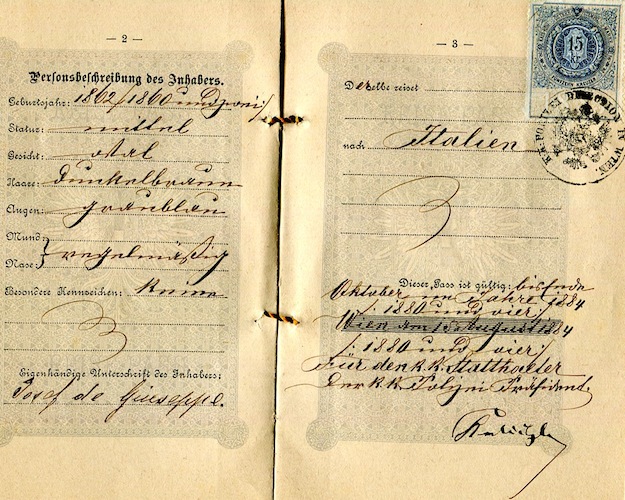 — 2 —
Personsbeschreibung des Inhabers.
Geburtsjahr: 1862 /:1860 und zwei:/
Statur: mittel
Gesicht: oval
Haare: dunkelbraun
Augen: graublau
Mund:
Nase: regelmäßig
Besondere Kennzeichen: keine
Eigenhändige Unterschrift des Inhabers:
Josef de Giuseppe.
— 3 —
15
K.K. POLIZEI DIRECTION IN WIEN
Derselbe reiset
nach Italien
Dieser Pass ist gültig: bis Ende
Oktober im Jahre 1884
/: 1880 und vier :/
Wien am 15 August 1884
/: 1880 und vier :/
Für den k.k. Statthalter
Der k.k. Polizei Präsident.